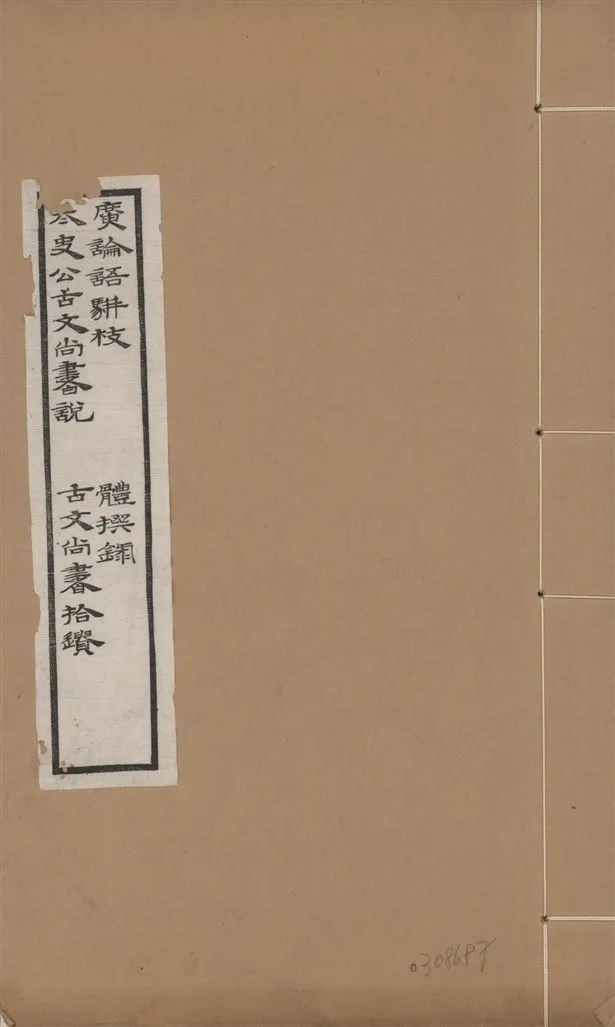 廣論語駢枝 體撰錄
太史公古文尚書說 古文尚書拾遺